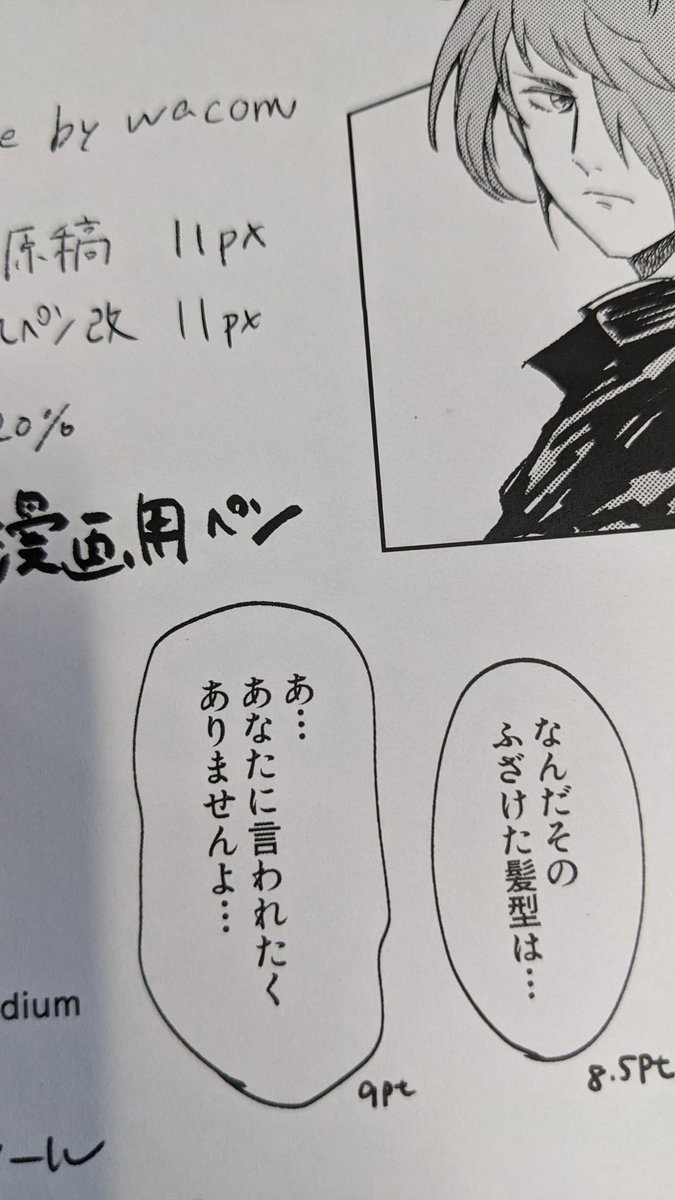 by wacom
原稿 11px
ペン改 11px
20%
漫画用ペン
なんだその
ふざけた髪型は…
8.5pt
あ…
あなたに言われたく
ありませんよ…
9pt
dium
ール